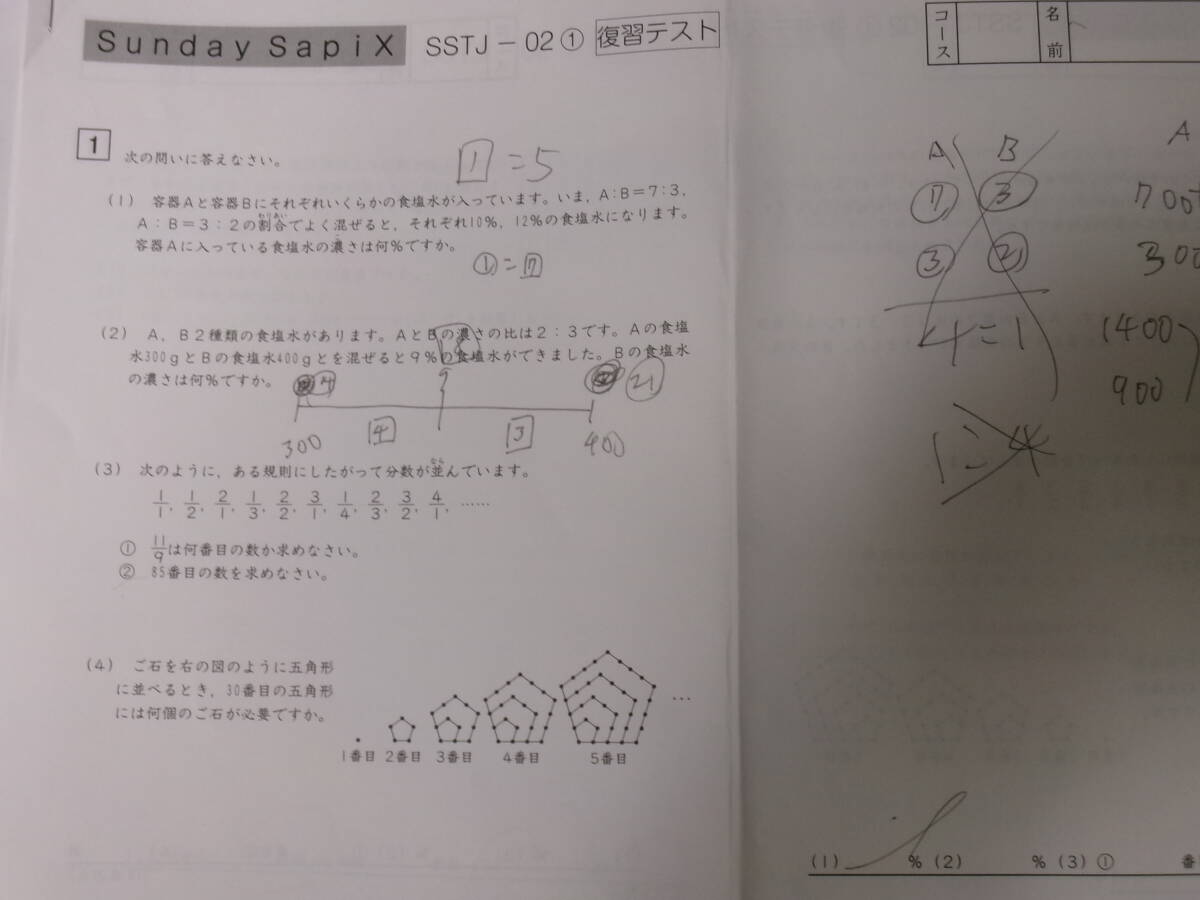 Sunday SapiX SSTJ－02① 復習テスト
コース
名前
1 次の問いに答えなさい。
1 ＝5
(1) 容器Aと容器Bにそれぞれいくらかの食塩水が入っています。いま，A：B＝7：3，
A：B＝3：2の割合でよく混ぜると，それぞれ10%，12%の食塩水になります。
容器Aに入っている食塩水の濃さは何%ですか。
①＝7
(2) A，B2種類の食塩水があります。AとBの濃さの比は2：3です。Aの食塩
水300gとBの食塩水400gとを混ぜると9%の食塩水ができました。Bの食塩水
の濃さは何%ですか。
21
300 4 3 400
(3) 次のように，ある規則にしたがって分数が並んでいます。
1/1，1/2，2/1，1/3，2/2，3/1，1/4，2/3，3/2，4/1，……
① 11/9は何番目の数か求めなさい。
② 85番目の数を求めなさい。
(4) ご石を右の図のように五角形
に並べるとき，30番目の五角形
には何個のご石が必要ですか。
…
1番目 2番目 3番目 4番目 5番目
A B A
⑦ ③ 700
③ ② 300
4：1 1400
900
1：4
(1) % (2) % (3) ① 番